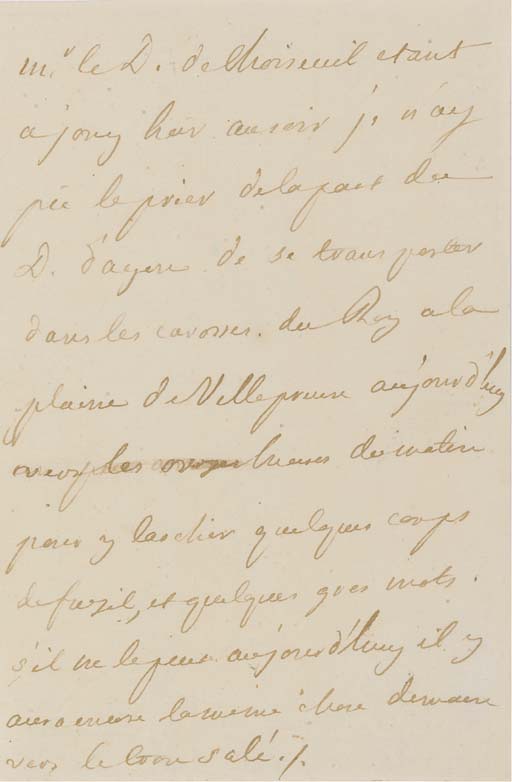 mr. le D. de Choiseuil etant
a jouy hier au soir je n'ay
pu le prier de la part du
D. d'ayen de se transporter
dans les carosses du Roy a la
plaine de Villepreux aujourd'huy
vers les onze heures du matin
pour y lascher quelques coups
de fuzil, et quelques gros mots.
s'il ne le peut aujourd'huy il y
aura encore la meme chose demain
vers le trou salé./.